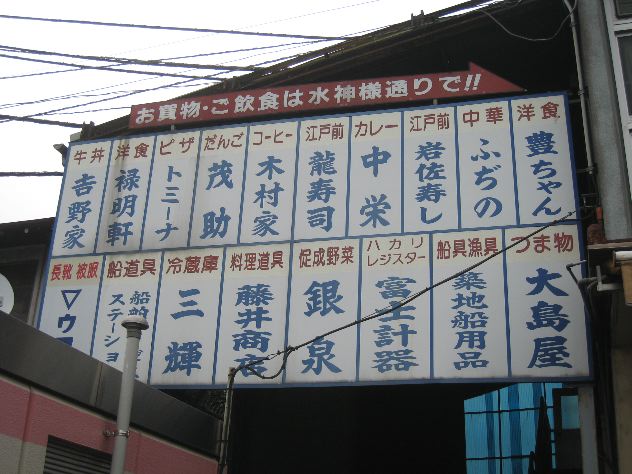 お買物・ご飲食は水神様通りで!!
牛丼 吉野家
洋食 禄明軒
ピザ トミーナ
だんご 茂助
コーヒー 木村家
江戸前 龍寿司
カレー 中栄
江戸前 岩佐寿し
中華 ふぢの
洋食 豊ちゃん
長靴 被服 ▽ウ
船道具 船舶 ステーショ
冷蔵庫 三輝
料理道具 藤井商店
促成野菜 銀泉
ハカリ レジスター 富士計器
船具漁具 築地船用品
つま物 大島屋